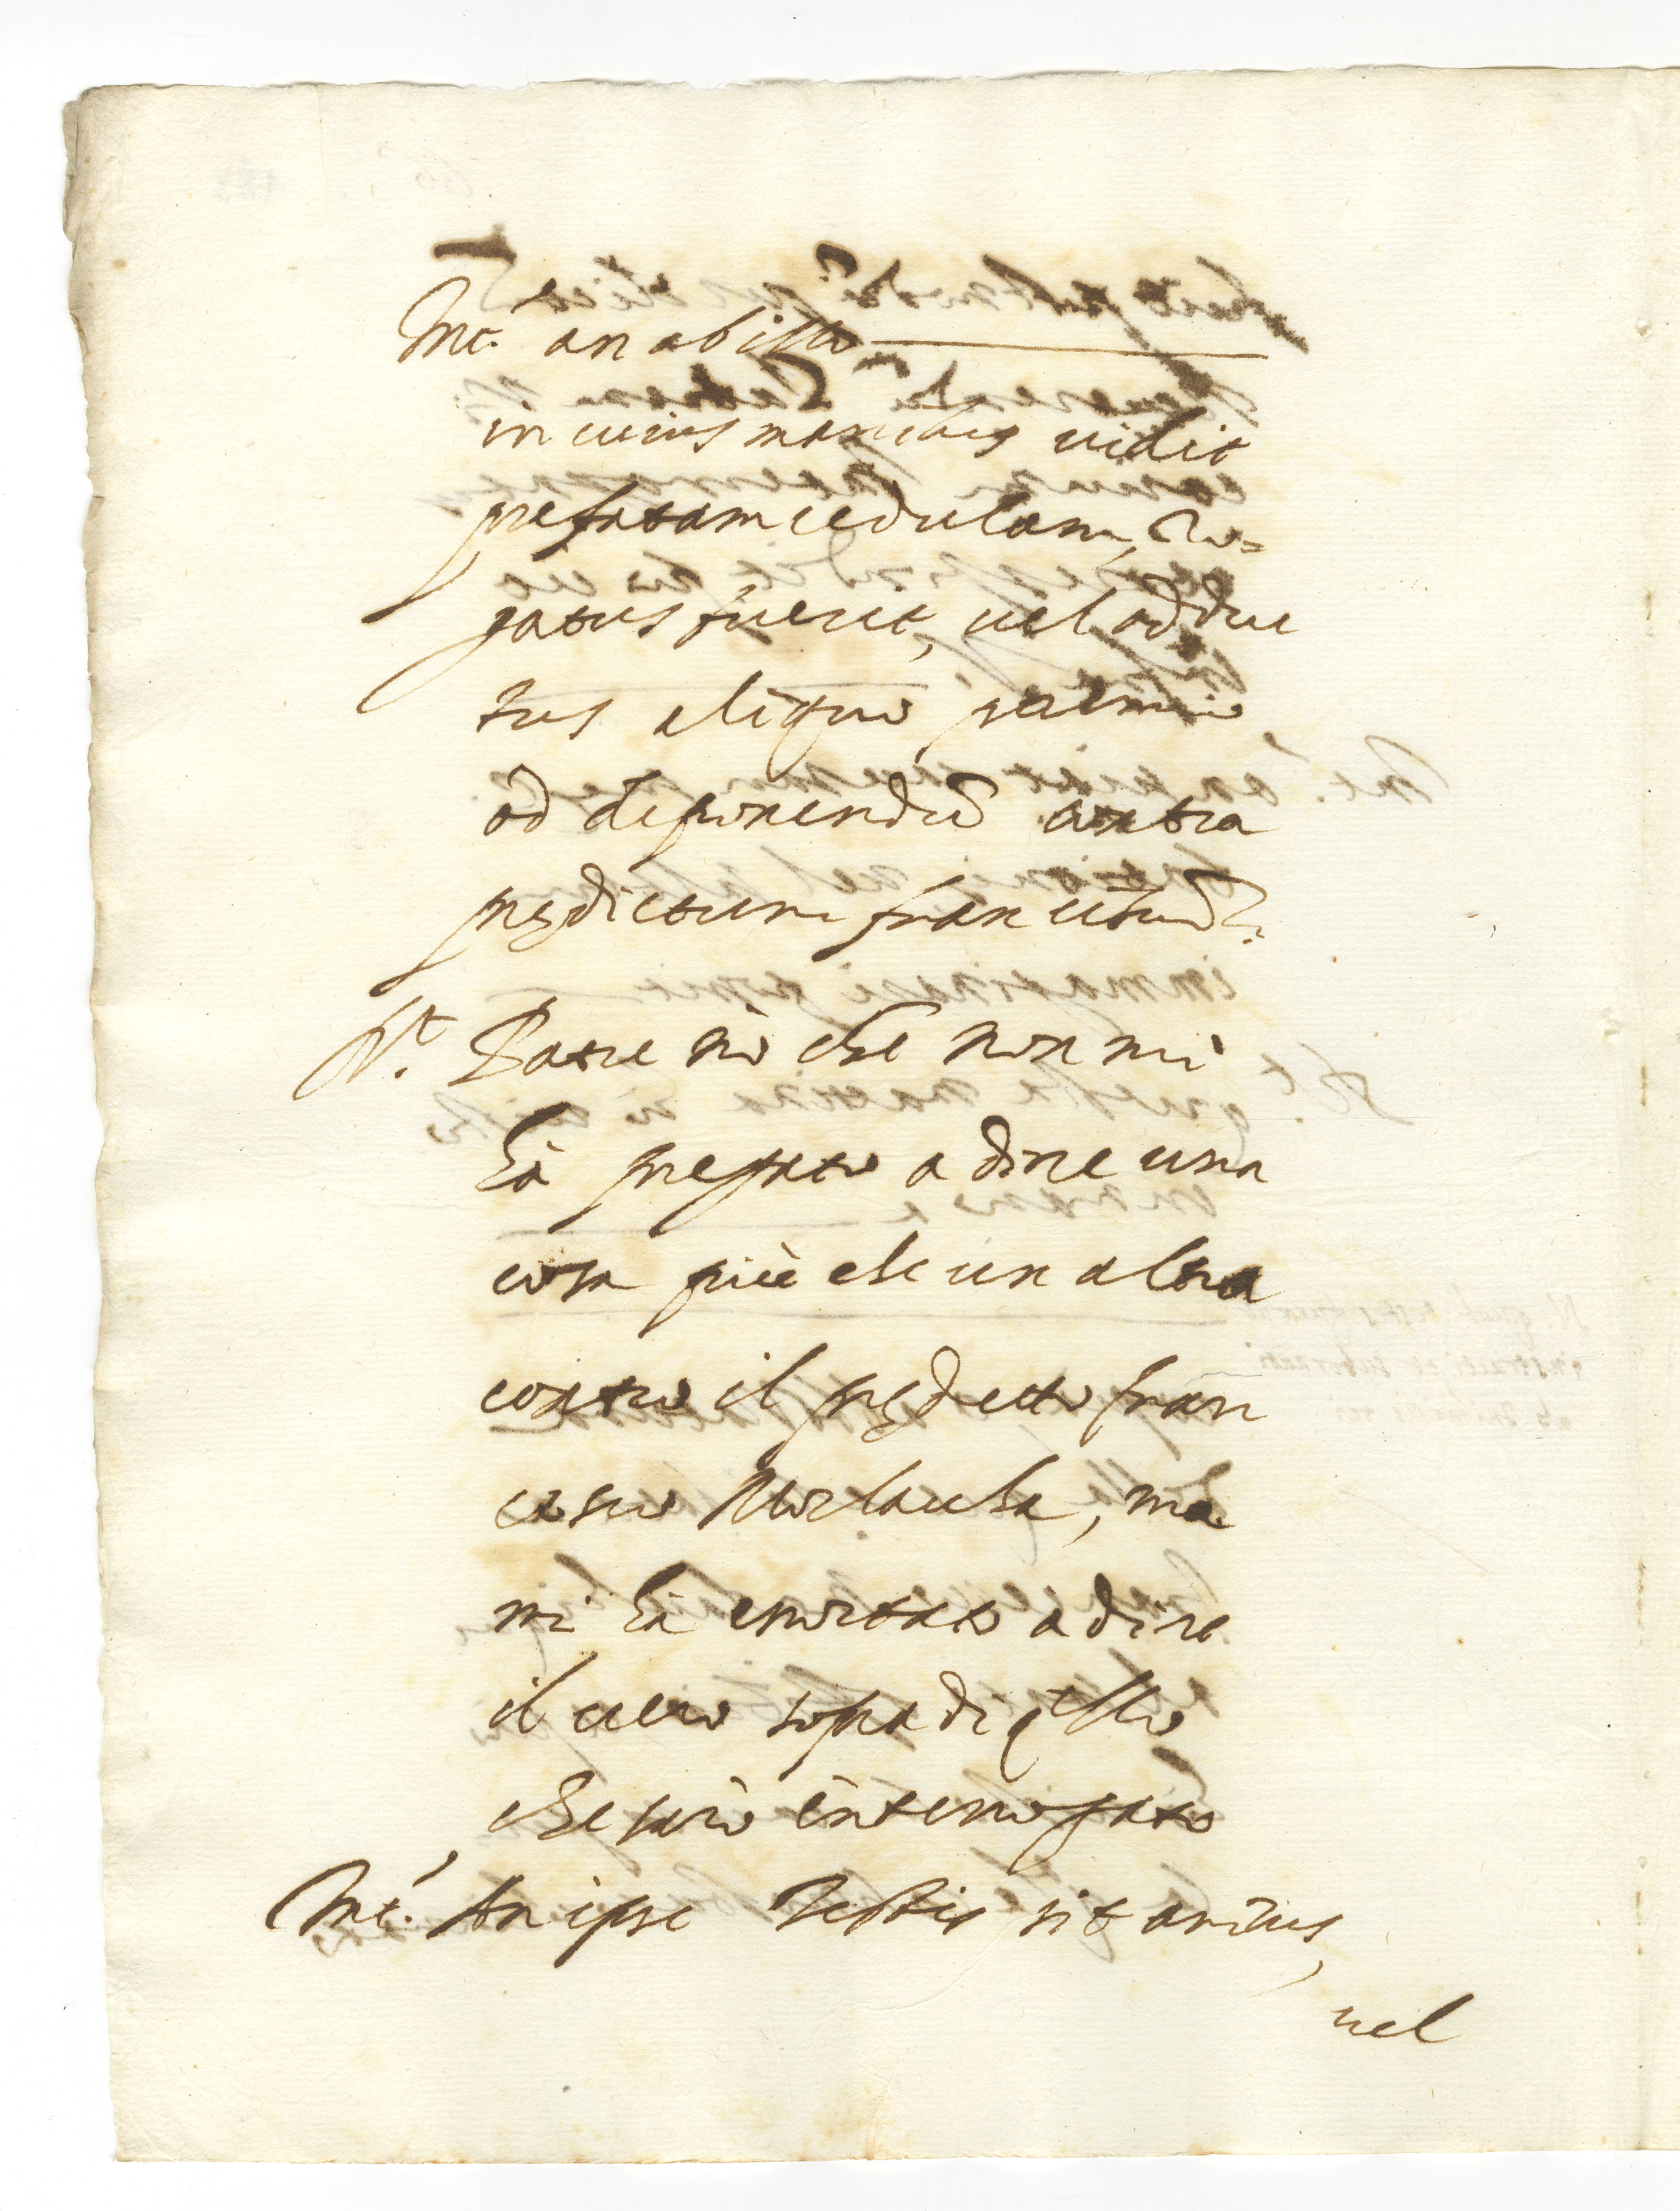 Int. an ab illo
in cuius manibus vidit
prefatam cedulam, ro=
gatus fuerit, vel adduc
tus aliquo premio
ad deponendũ contra
prędictum franciscũ?
Rt. Patre nò che non mi
hà pregato a dire una
cosa più che un altra
contro il prędetto fran
cesco Morlacha, ma
mi hà esortato a dire
il vero sopra di qsto
che sarò interrogato
Int. An ipse Testis sit amicus,
vel